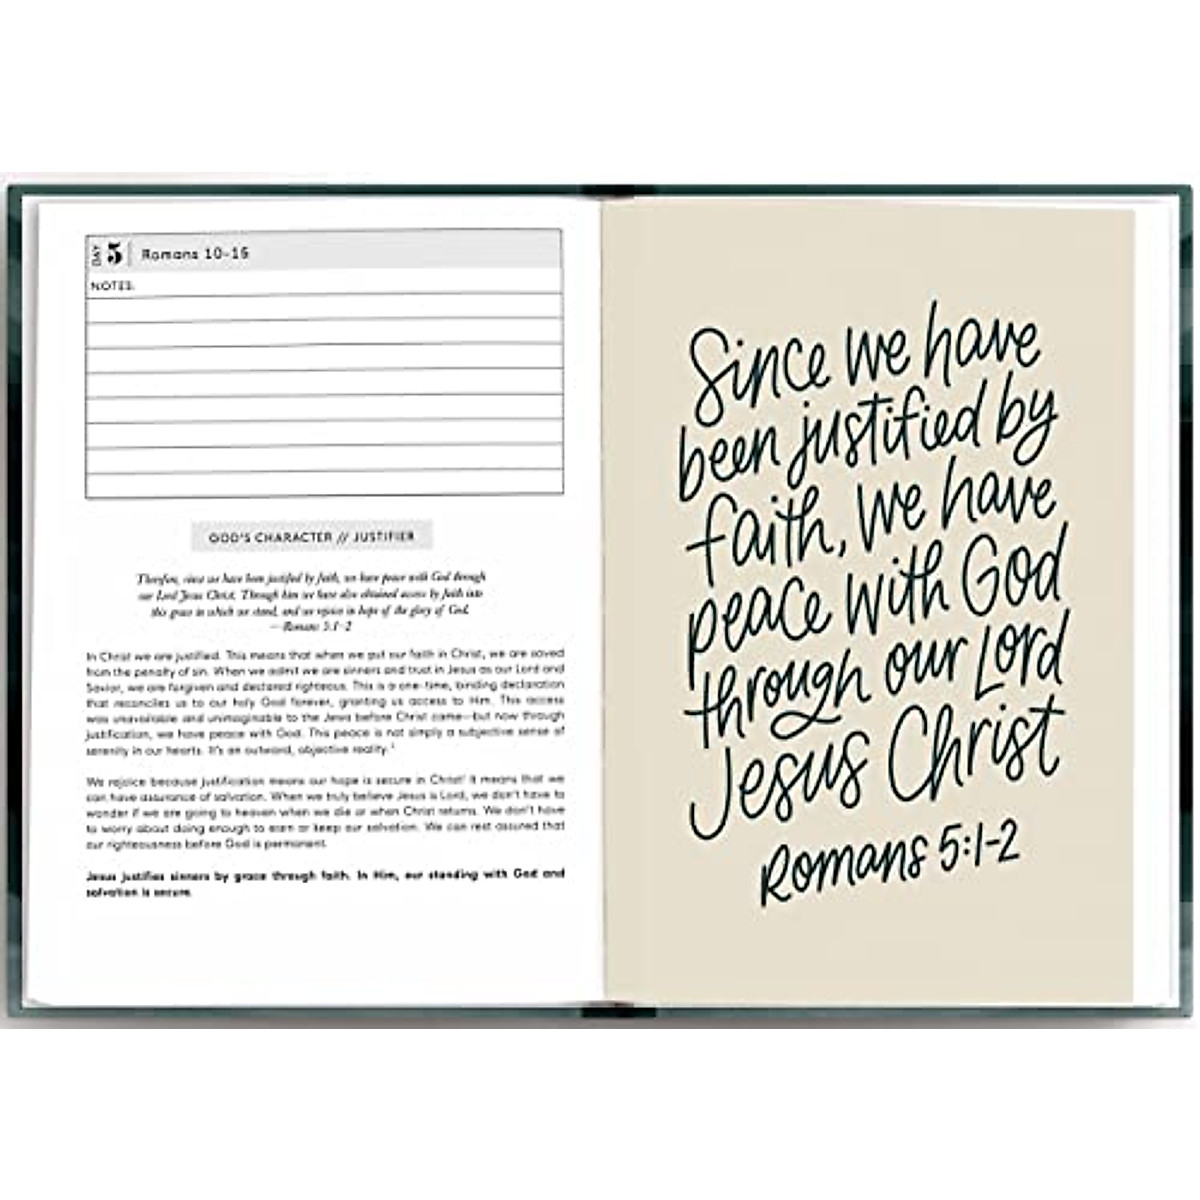 DAY 5 Romans 10-16
NOTES:
GOD'S CHARACTER // JUSTIFIER
Therefore, since we have been justified by faith, we have peace with God through
our Lord Jesus Christ. Through him we have also obtained access by faith into
this grace in which we stand, and we rejoice in hope of the glory of God.
—Romans 5:1-2
In Christ we are justified. This means that when we put our faith in Christ, we are saved
from the penalty of sin. When we admit we are sinners and trust in Jesus as our Lord and
Savior, we are forgiven and declared righteous. This is a one-time, binding declaration
that reconciles us to our holy God forever, granting us access to Him. This access
was unavailable and unimaginable to the Jews before Christ came—but now through
justification, we have peace with God. This peace is not simply a subjective sense of
serenity in our hearts. It's an outward, objective reality.¹
We rejoice because justification means our hope is secure in Christ! It means that we
can have assurance of salvation. When we truly believe Jesus is Lord, we don't have to
wonder if we are going to heaven when we die or when Christ returns. We don't have
to worry about doing enough to earn or keep our salvation. We can rest assured that
our righteousness before God is permanent.
Jesus justifies sinners by grace through faith. In Him, our standing with God and
salvation is secure.
Since we have
been justified by
faith, we have
peace with God
through our Lord
Jesus Christ
Romans 5:1-2